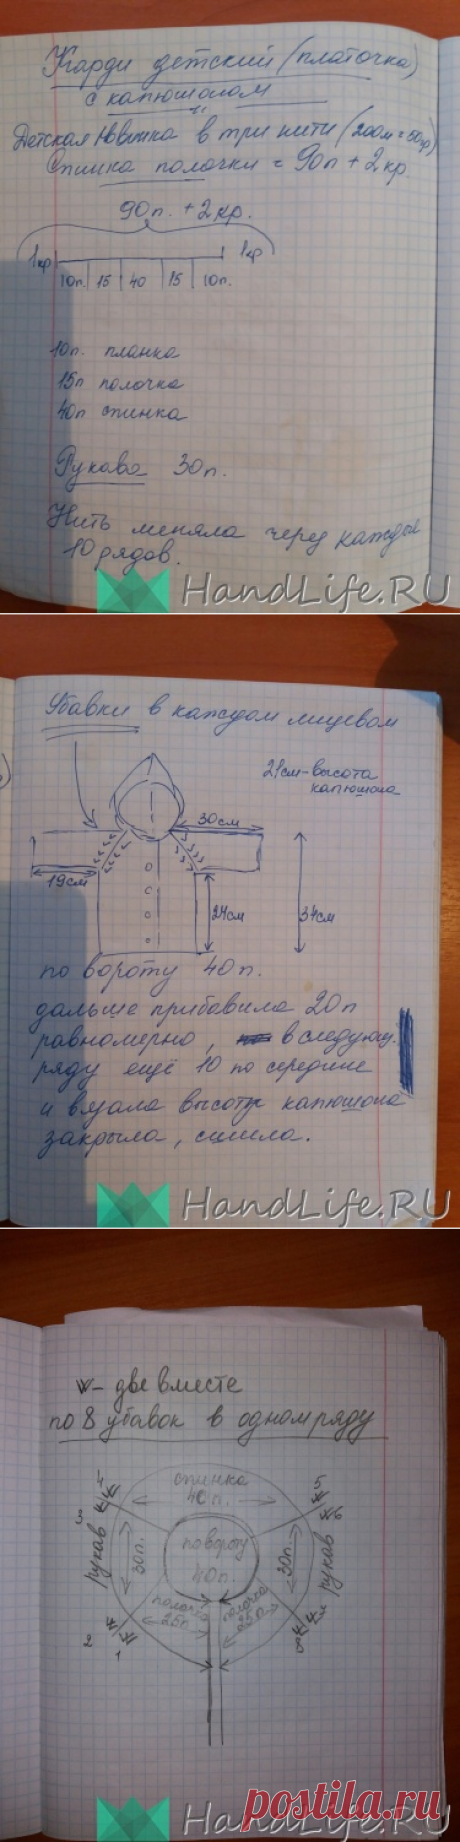 Карди детский (платочка)
с капюшоном
Детская Новинка в три нити (200м=50гр)
Спинка полочки = 90п + 2кр.
90п. + 2кр.
1кр 1кр
10п. 15 40 15 10п.
10п. планка
15п полочка
40п спинка
Рукава 30п.
Нить меняла через каждые
10 рядов.
HandLife.RU
Убавки в каждом лицевом
21см-высота
капюшона
30см
19см
24см
34см
по вороту 40п.
дальше прибавила 20п
равномерно, в следующ.
ряду ещё 10 по середине
и вязала высоту капюшона
закрыла, сшила.
HandLife.RU
- две вместе
по 8 убавок в одном ряду
спинка
40п.
4
5
3
6
рукав
30п.
по вороту
40п.
30п.
рукав
полочка
25п.
полочка
25п.
2
1
8
HandLife.RU
postila.ru